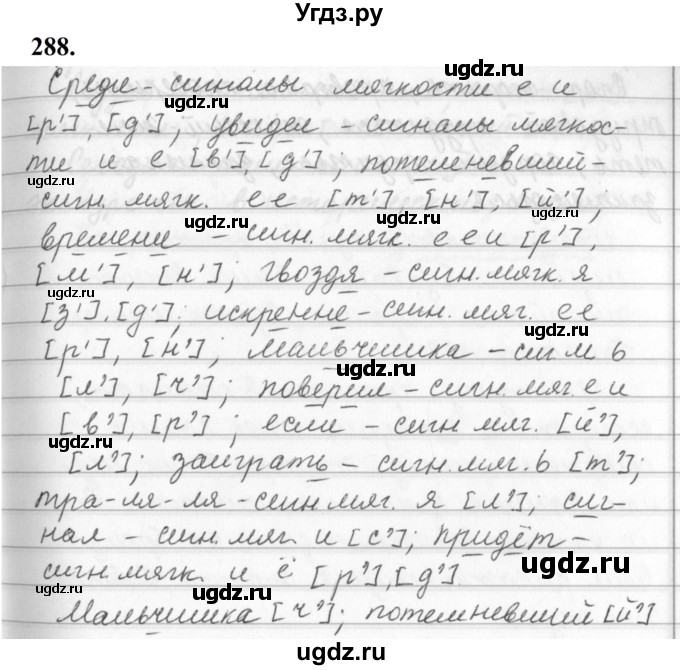 Угдз.ру
288.
Среди - сигналы мягкости е и
[р'], [д']; увидел - сигналы мягкос-
ти и е [в'], [д']; потемневший -
сигн. мягк. е е [т'] [н'], [й'];
времени - сигн. мягк. е е и [р'],
[м'], [н']; гвоздя - сигн. мягк. я
[з'], [д']; искренне - сигн. мяг. е е
[р'], [н']; мальчишка - сиг м ь
[л'], [ч']; поверил - сигн. мяг. е и
[в'], [р']; если - сигн мяг. [й'],
[л']; заиграть - сигн. мяг. ь [т'];
тра-ля-ля - сигн. мяг. я [л']; сиг-
нал - сигн. мяг. и [с']; придёт -
сигн. мягк. и ё [р'], [д']
Мальчишка [ч']; потемневший [й']
ugdz.ru
ugdz.ru
ugdz.ru
ugdz.ru
ugdz.ru
ugdz.ru
ugdz.ru
ugdz.ru
ugdz.ru
ugdz.ru
ugdz.ru
ugdz.ru
ugdz.ru
ugdz.ru